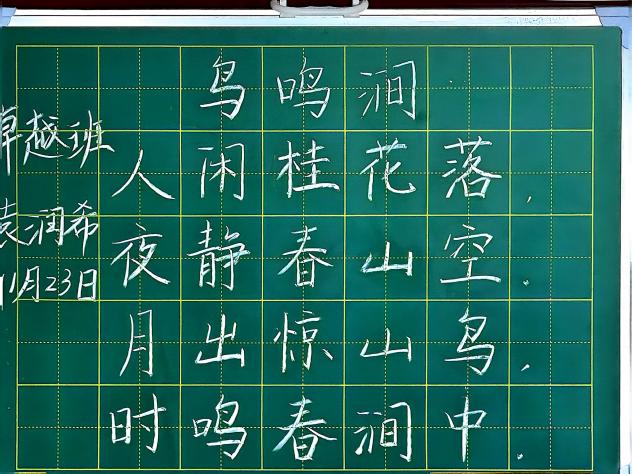 鸟鸣涧
人闲桂花落，
夜静春山空。
月出惊山鸟，
时鸣春涧中。
卓越班
袁润希
11月23日